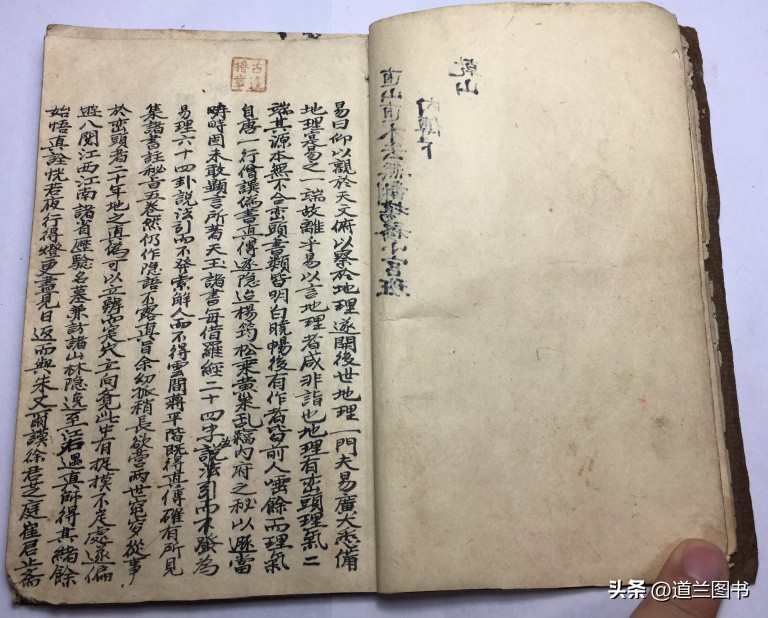 乾山
内傳下
易曰仰以觀於天文俯以察於地理遂開後世地理一門夫易廣大悉備
地理寔易之一端故離乎易以言地理者咸非詣也地理有巒頭理氣二
端其源本無不合巒頭書顯皆明白曉暢後有作者皆前人唾餘而理氣
自唐一行僧譔偽書真傳遂隐迨楊筠松乘黄巢乱竊内府之秘以遯當
時時因未敢顯言所著天玉諸書每借羅經二十四字說法引而不發為
易理六十四卦說法引而不發索解人而不得雲間蔣平階既得真傳確有所見
集諸書註秘旨五卷然仍作隐語不露真旨余幼孤稍長欲營兩世窀穸從事
於巒頭者二十年地之真偽可以立辨而定穴立向竟此中有捉摸不定處遂偏
遊八閩江西江南諸省歷驗名墓兼訪諸山林隐逸至江右遇真師得其緒餘
始悟真詮恍若夜行得燈更晝見日返而與朱丈爾謨徐君芝庭崔君止齋
头条 @道兰图书